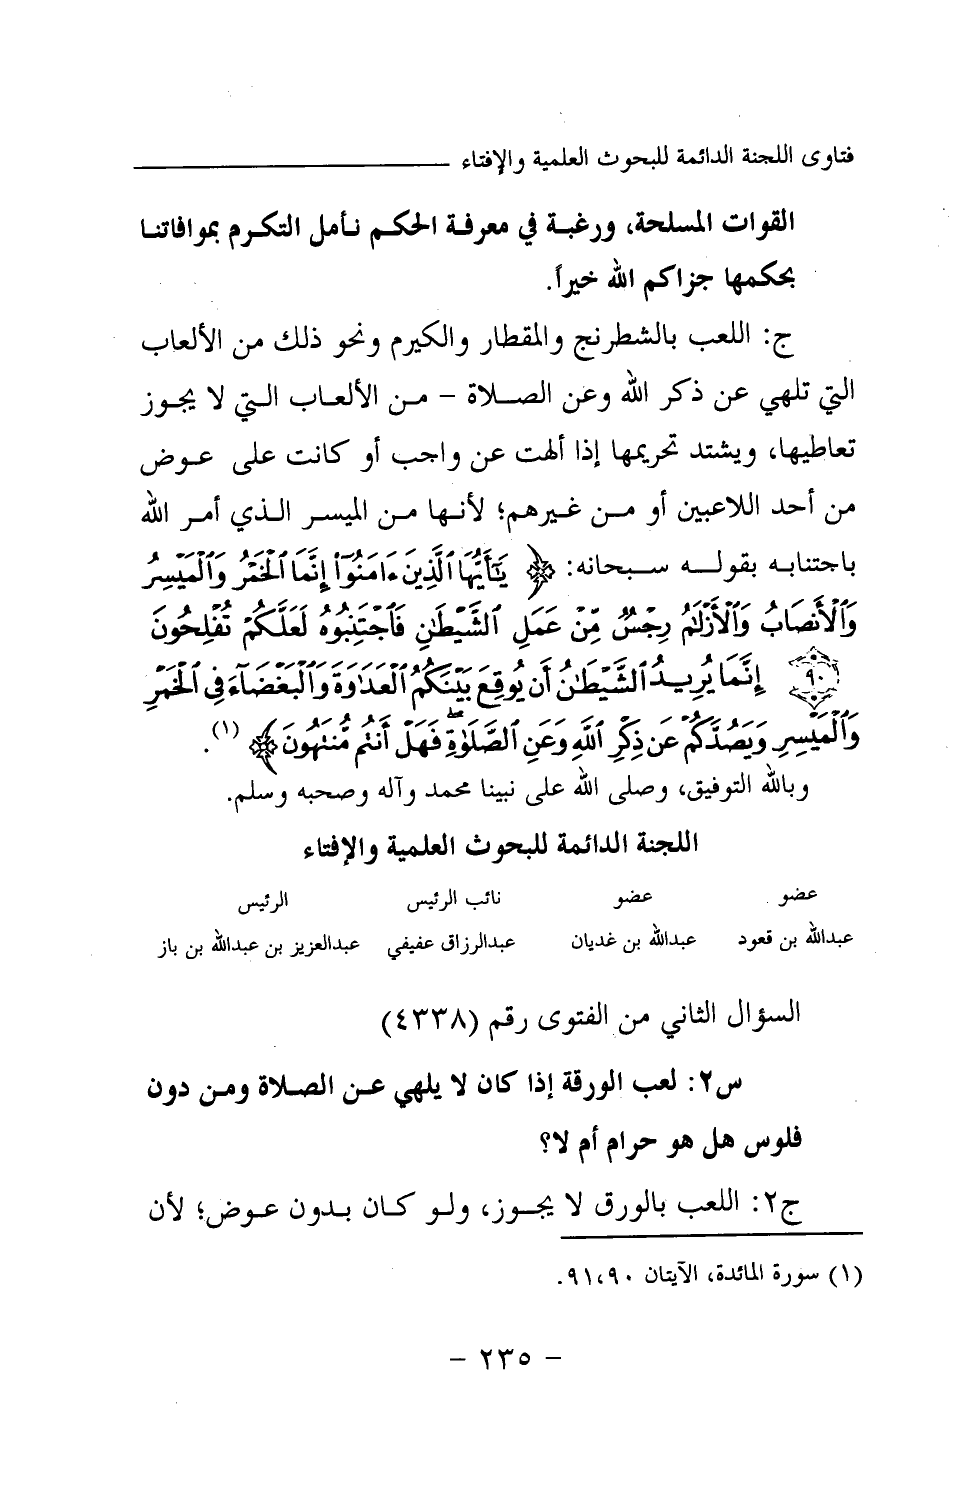 فتاوى اللجنة الدائمة للبحوث العلمية والإفتاء
القوات المسلحة، ورغبة في معرفة الحكم نأمل التكرم بموافاتنا
بحكمها جزاكم الله خيراً.
ج: اللعب بالشطرنج والمقطار والكيرم ونحو ذلك من الألعاب
التي تلهي عن ذكر الله وعن الصلاة – من الألعاب التي لا يجوز
تعاطيها، ويشتد تحريمها إذا ألهت عن واجب أو كانت على عوض
من أحد اللاعبين أو من غيرهم؛ لأنها من الميسر الذي أمر الله
باجتنابه بقوله سبحانه: ﴿ يَٰٓأَيُّهَا ٱلَّذِينَ ءَامَنُوٓا۟ إِنَّمَا ٱلْخَمْرُ وَٱلْمَيْسِرُ
وَٱلْأَنصَابُ وَٱلْأَزْلَٰمُ رِجْسٌ مِّنْ عَمَلِ ٱلشَّيْطَٰنِ فَٱجْتَنِبُوهُ لَعَلَّكُمْ تُفْلِحُونَ
٩٠ إِنَّمَا يُرِيدُ ٱلشَّيْطَٰنُ أَن يُوقِعَ بَيْنَكُمُ ٱلْعَدَٰوَةَ وَٱلْبَغْضَآءَ فِى ٱلْخَمْرِ
وَٱلْمَيْسِرِ وَيَصُدَّكُمْ عَن ذِكْرِ ٱللَّهِ وَعَنِ ٱلصَّلَوٰةِ ۖ فَهَلْ أَنتُم مُّنتَهُونَ ﴾ (١).
وبالله التوفيق، وصلى الله على نبينا محمد وآله وصحبه وسلم.
اللجنة الدائمة للبحوث العلمية والإفتاء
عضو عضو نائب الرئيس الرئيس
عبدالله بن قعود عبدالله بن غديان عبدالرزاق عفيفي عبدالعزيز بن عبدالله بن باز
السؤال الثاني من الفتوى رقم (٤٣٣٨)
س٢: لعب الورقة إذا كان لا يلهي عن الصلاة ومن دون
فلوس هل هو حرام أم لا؟
ج٢: اللعب بالورق لا يجوز، ولو كان بدون عوض؛ لأن
(١) سورة المائدة، الآيتان ٩١،٩٠.
– ٢٣٥ –